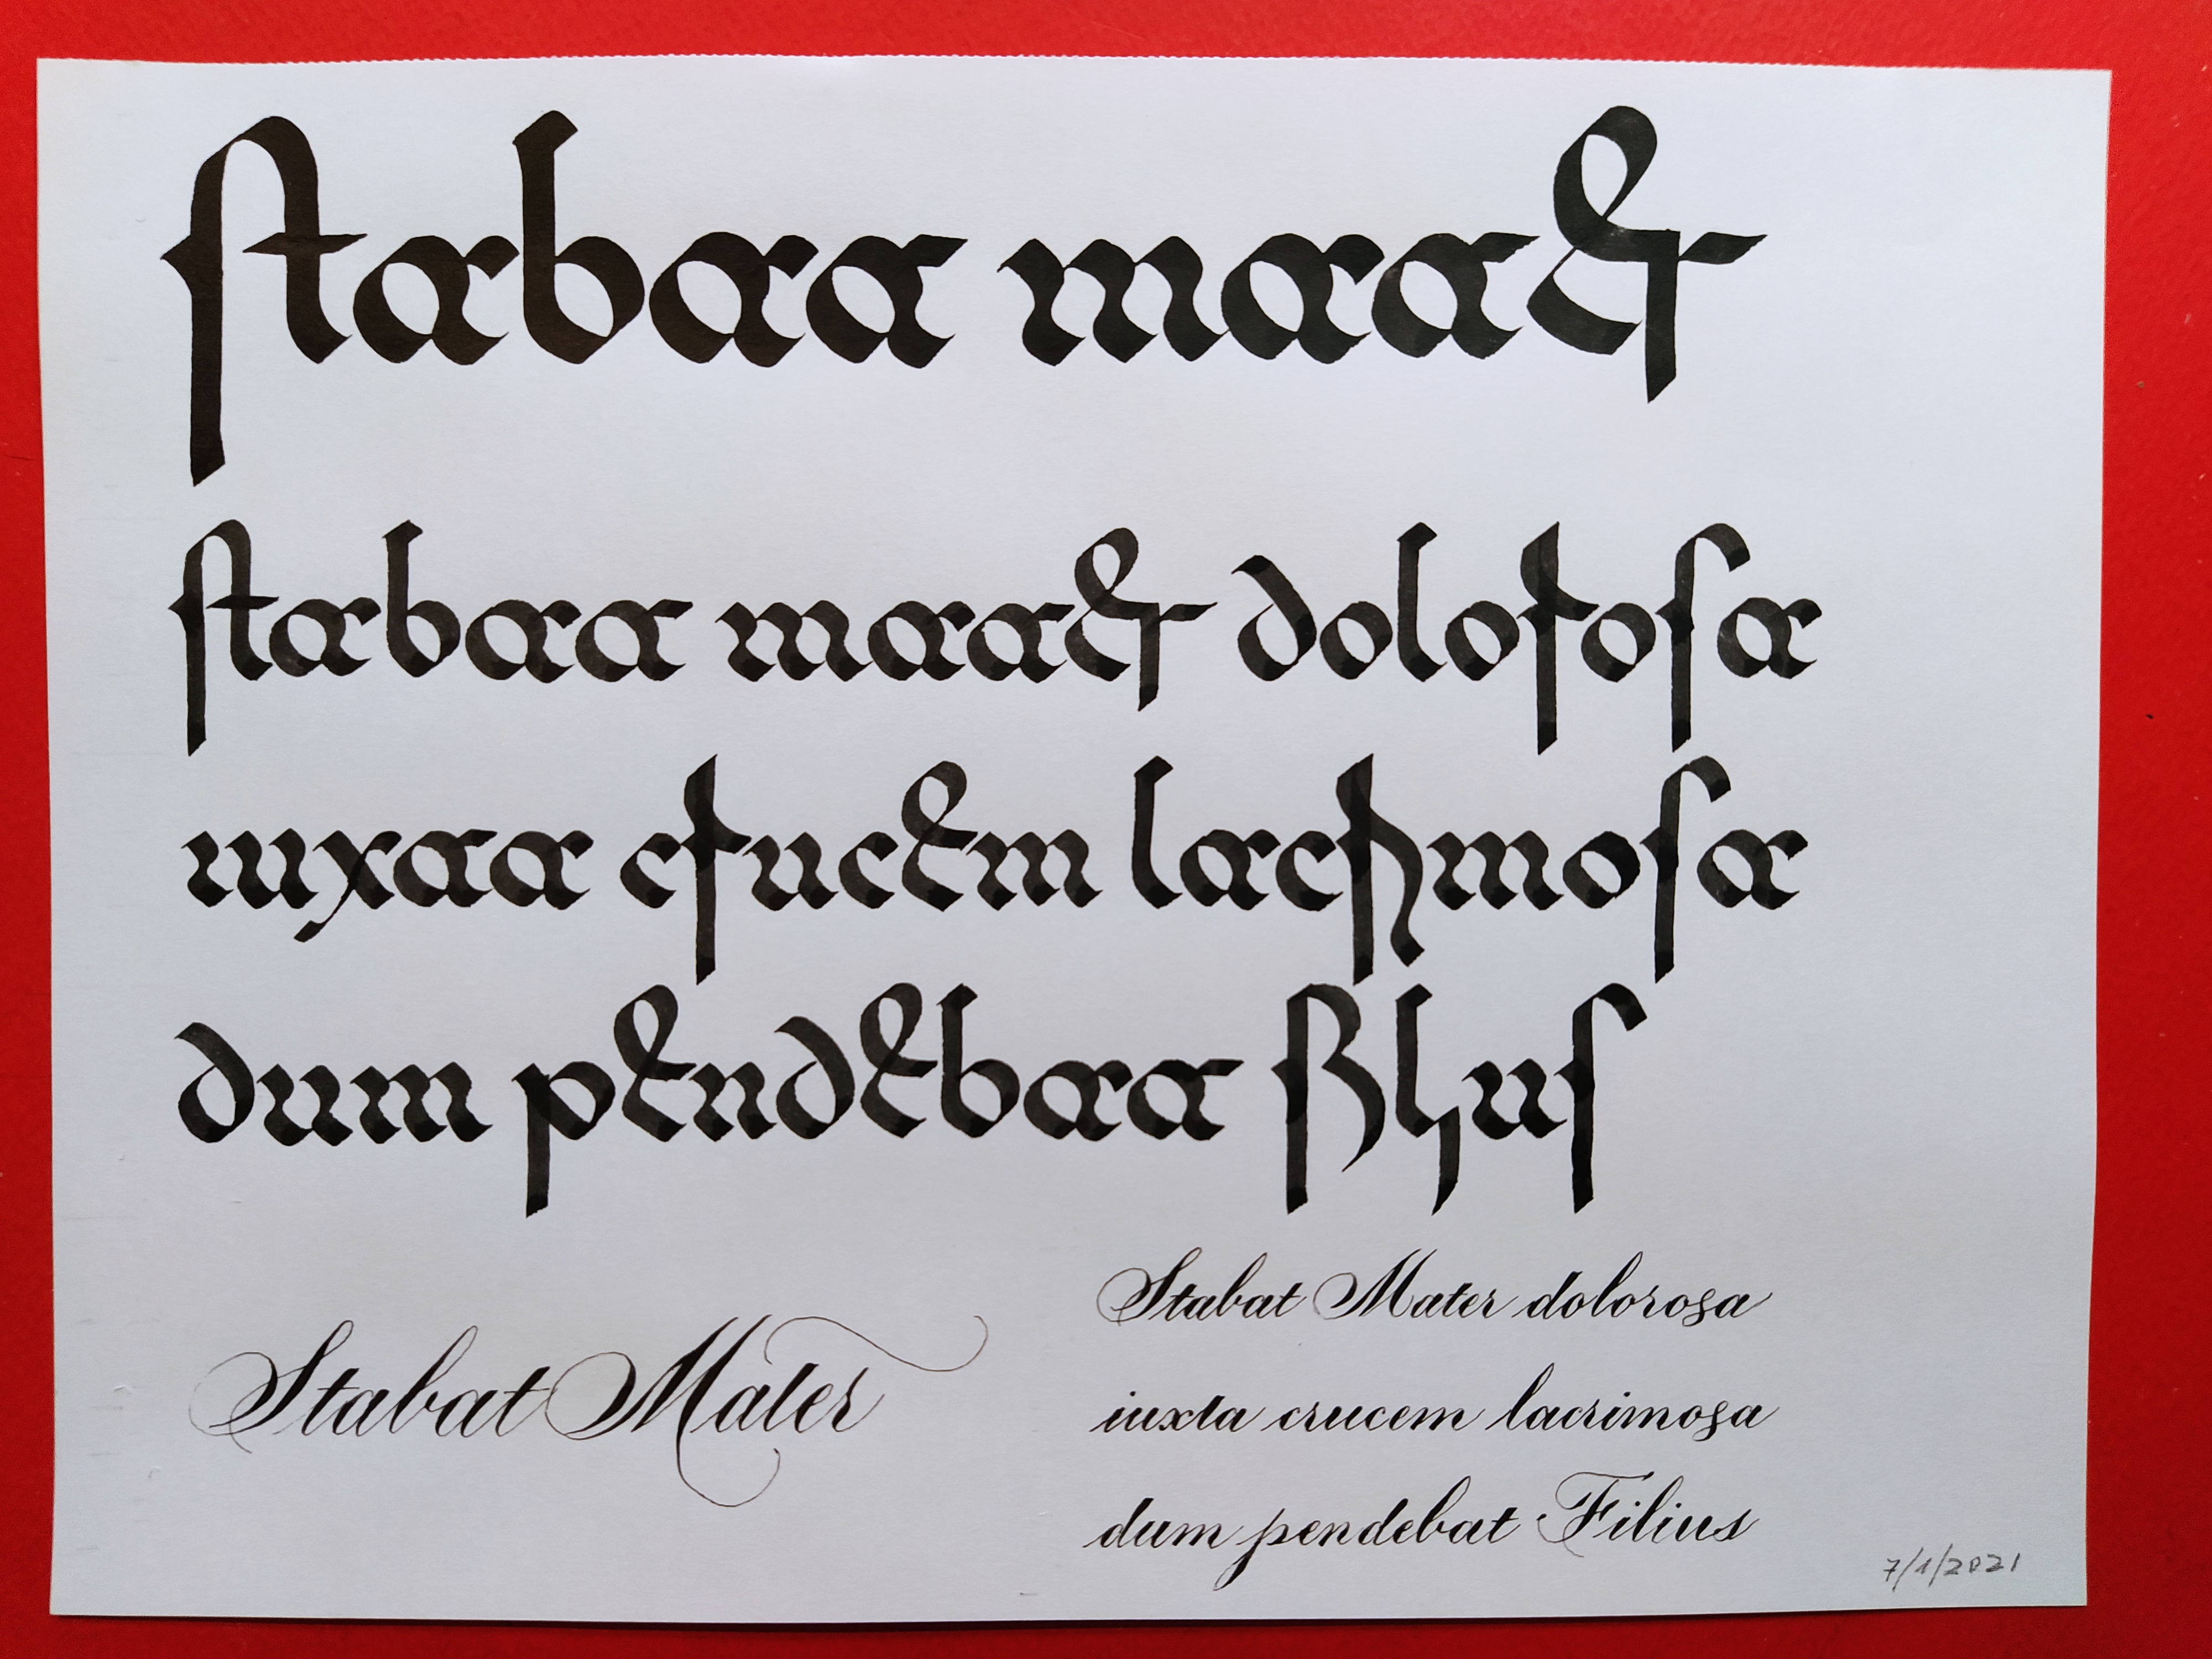 stabat mater
stabat mater dolorosa
iuxta crucem lacrimosa
dum pendebat filius
Stabat Mater
Stabat Mater dolorosa
iuxta crucem lacrimosa
dum pendebat Filius
7/1/2021